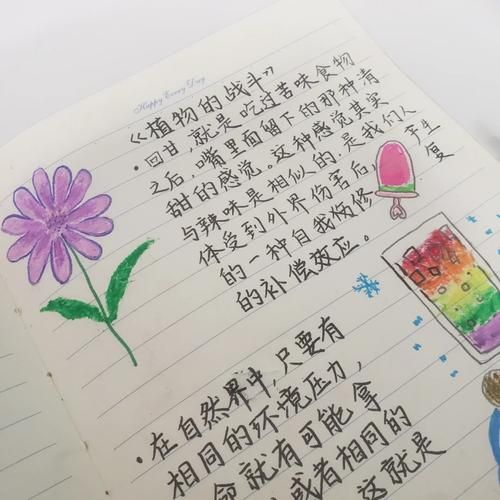 Happy Every Day
《植物的战斗》
·回甘,就是吃过苦味食物
之后,嘴里面留下的那种清
甜的感觉,这种感觉其实
与辣味是相似的,是我们人
体受到外界伤害后产生
的一种自我修复
的补偿效应。
·在自然界中,只要有
相同的环境压力,
命就有可能拿
或者相同的
这就是